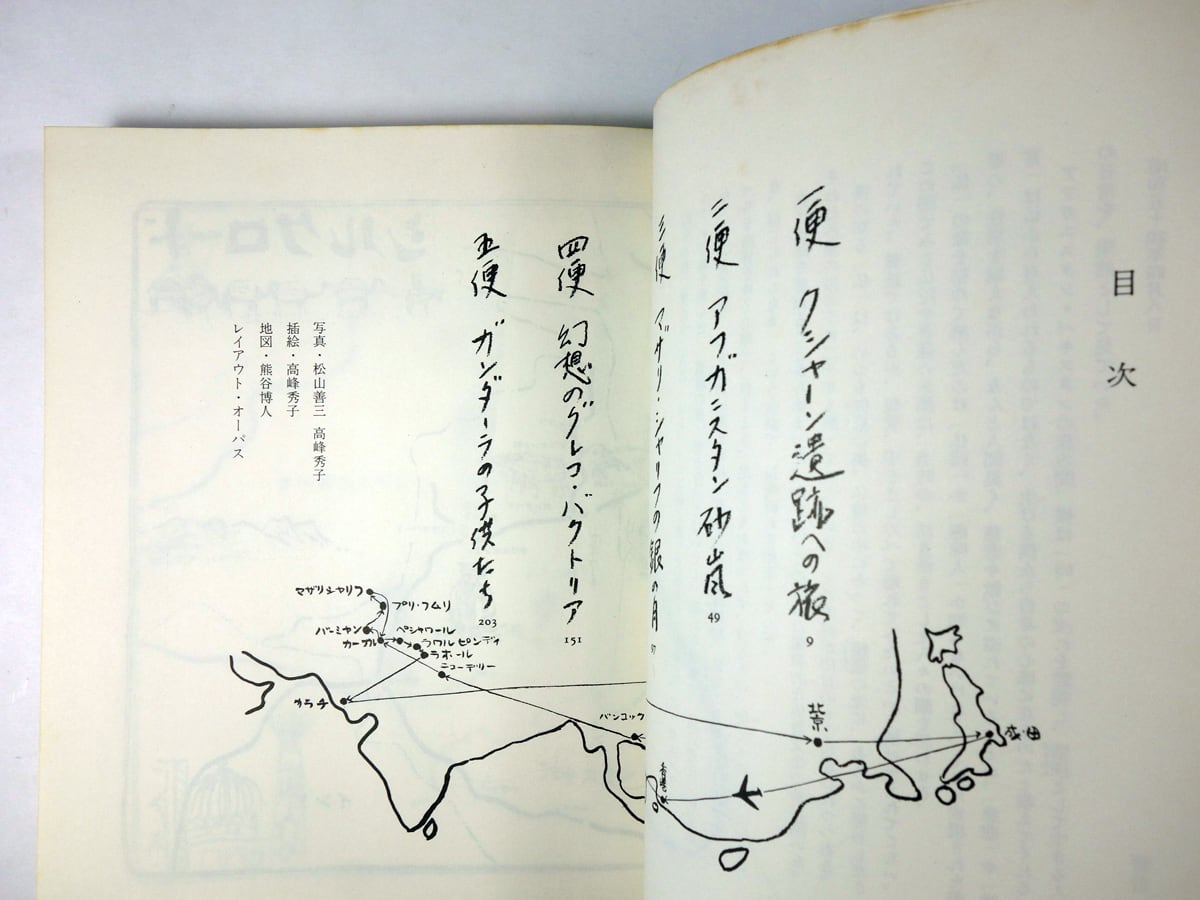 目次
一便 クシャーン遺跡への旅 9
二便 アフガニスタン砂嵐 49
三便 マザリ・シャリフの銀の月 97
四便 幻想のグレコ・バクトリア 151
五便 ガンダーラの子供たち 203
写真・松山善三 高峰秀子
插絵・高峰秀子
地図・熊谷博人
レイアウト・オーパス
成田
北京
香港
バンコック
ニューデリー
ラホール
ラワルピンディ
ペシャワール
カーブル
バーミヤン
プリ・フムリ
マザリシャリフ
カラチ
シルクロード